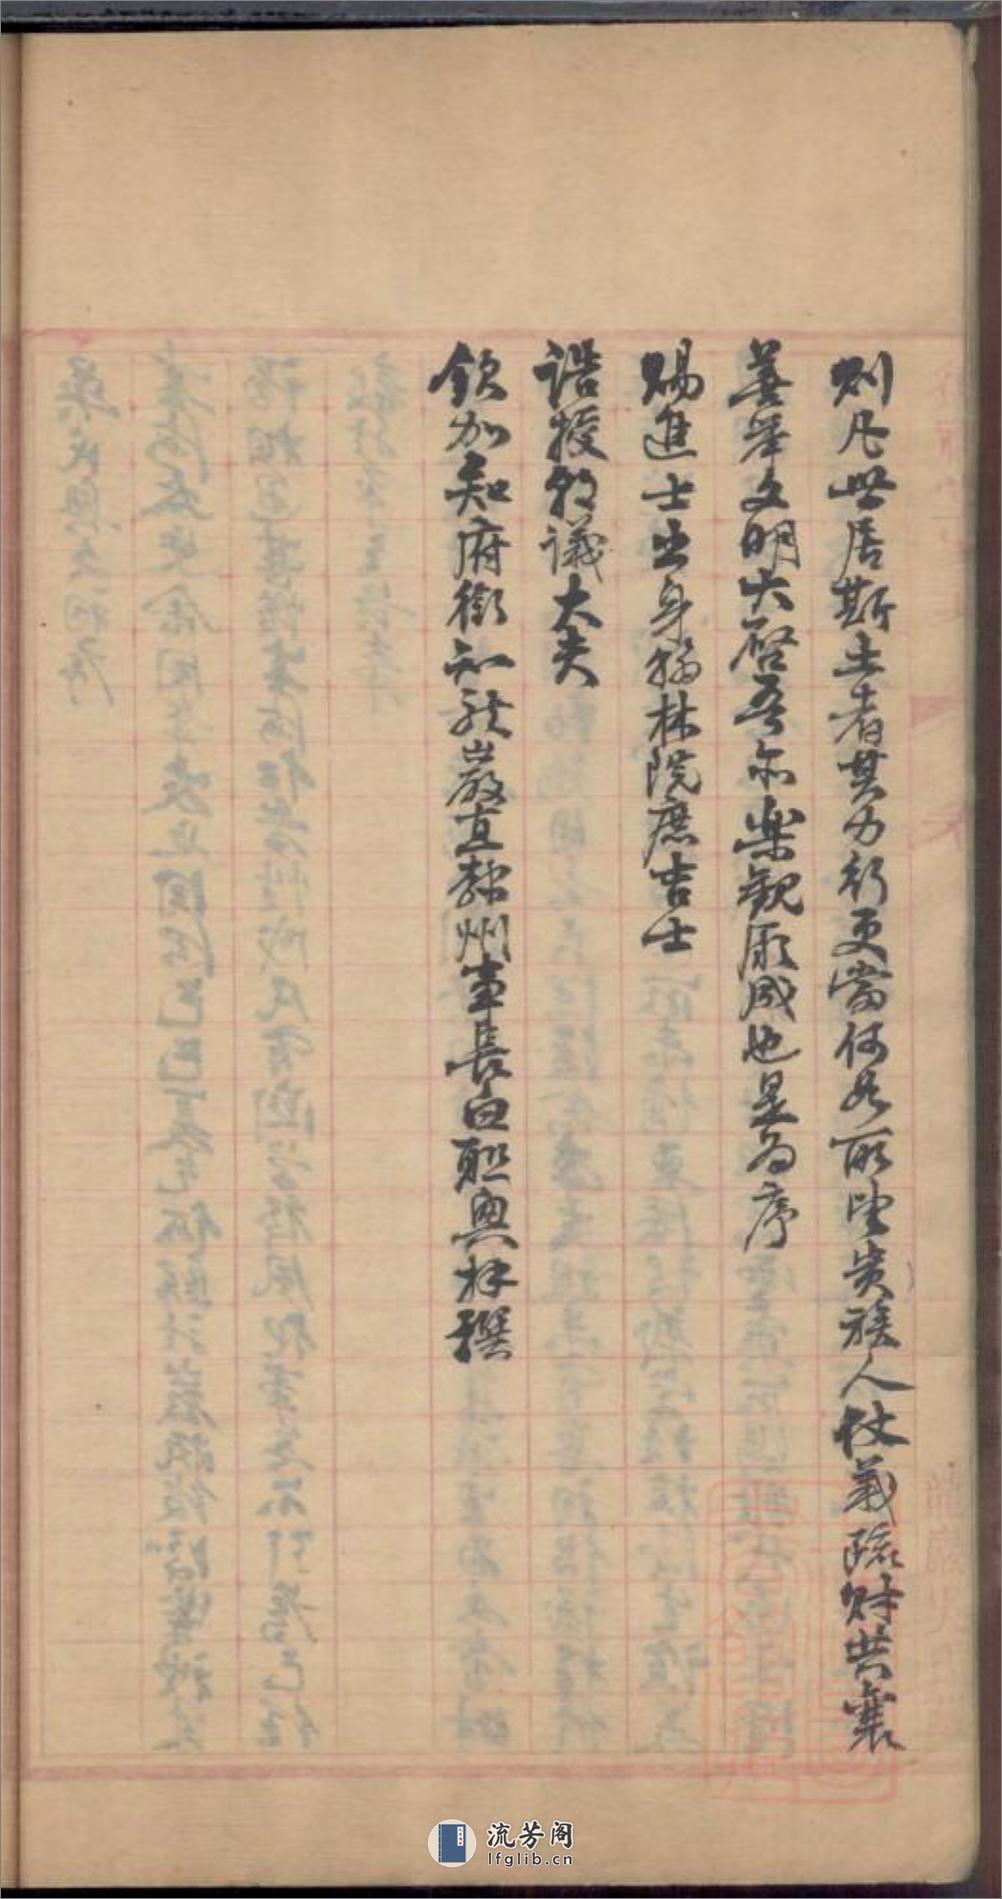 則凡世居斯土者其力行更當何如所望貴族人仗義疏財共襄
善舉文明大啓吾亦樂觀厥成也是為序
賜進士出身翰林院庶吉士
誥授朝議大夫
欽加知府銜知龍巖直隸州事長白聯興撰
流芳阁
lfglib.cn